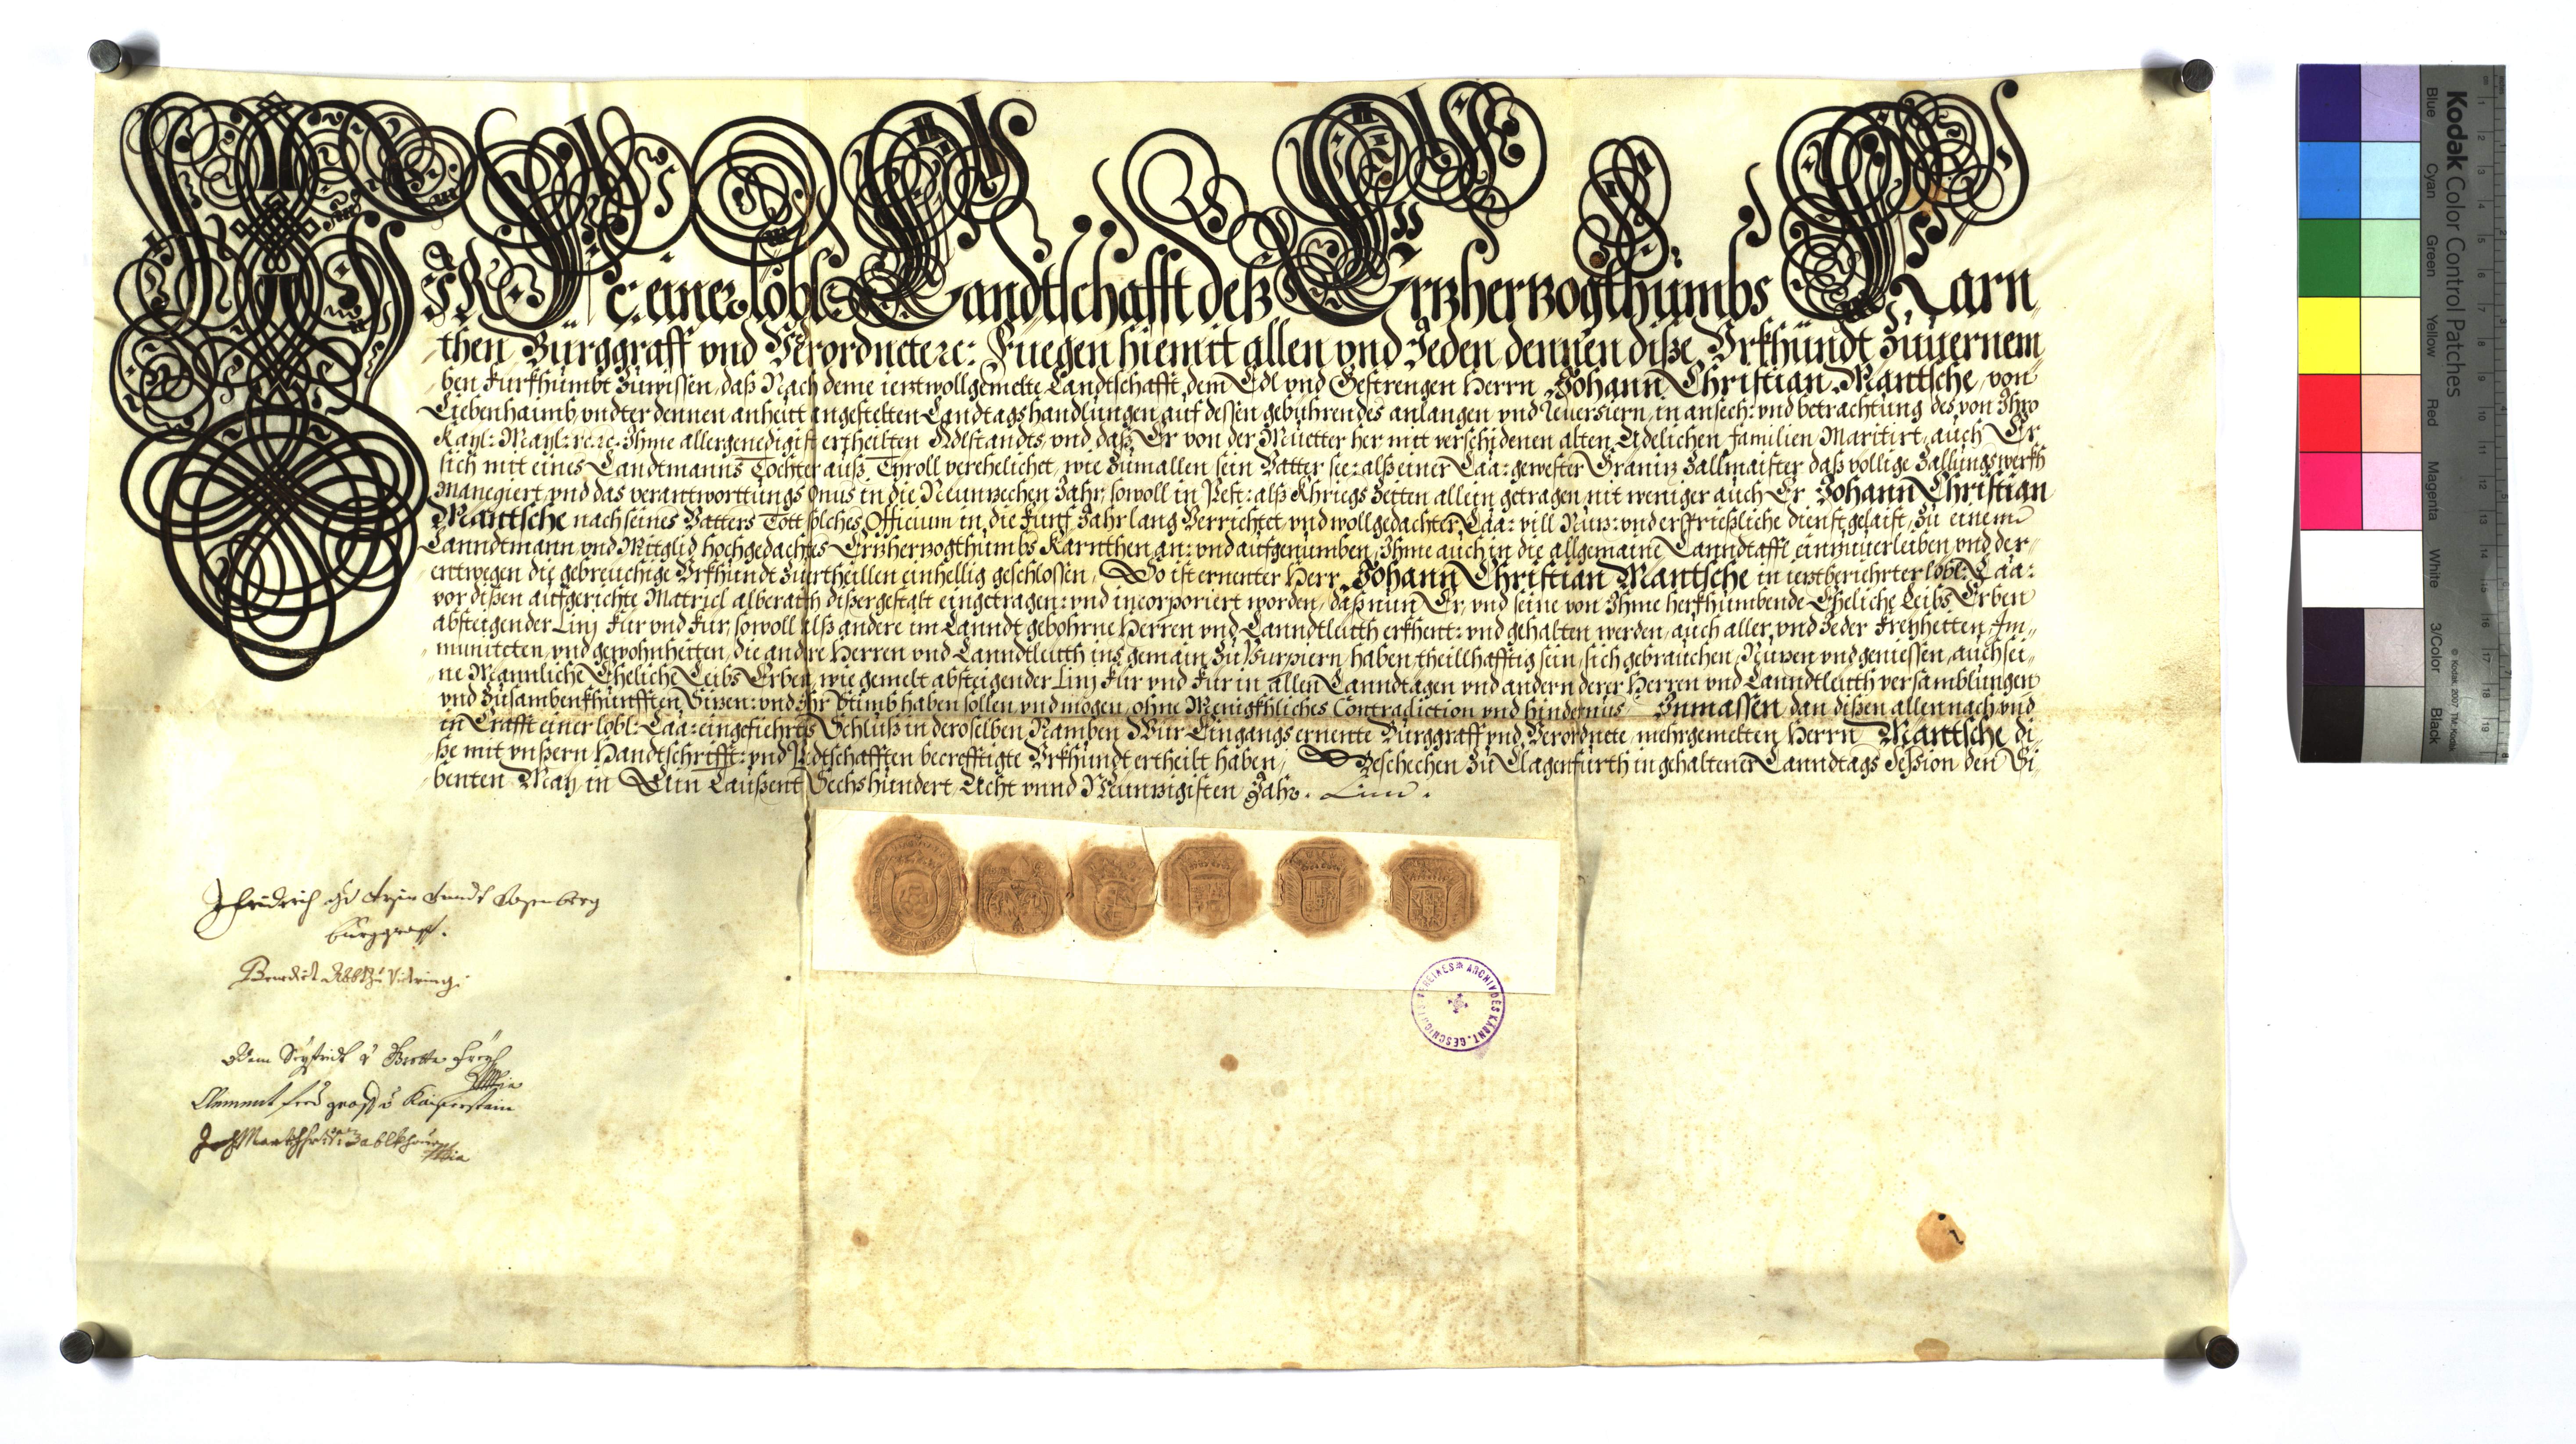 WIR N: N: einer löbl: Landtschafft deß Ertzhertzogthumbs Karn-
then Burggraff vnd Verordnete etc: Fuegen hiemit allen vnd Jeden dennen diße Vrkhundt zuuernem-
ben fürkhumbt zuwissen, daß Nach deme ientwollgemelte Landtschafft, dem Edl vnd Gestrengen Herrn Johann Christian Mantsche, von
Liebenhaimb, vndter dennen anheut angestelten Landtags handlungen auf dessen gebührendes anlangen, vnd Reuersiern, in ansech: vnd betrachtung des von Ihro
Kayl: Mayl: etc: etc: Ihme allergenedigist ertheilten Adlstandts, vnd daß Er von der Muetter her mit verschidenen alten Adelichen familien Maritirt, auch Er
sich mit eines Landtmanns Tochter auß Tyroll verehelichet, wie zumallen sein Vatter see: alß einer Laa: gewester Gränitz Zallmaister daß völlige Zallungswerkh
Manegiert, vnd das verantworttungs Onus in die Neuntzechen Jahr, sowoll in Pest: alß Khriegs Zeiten allein getragen, nit weniger auch Er Johann Christian
Mantsche nach seines Vatters Tott solches Officium in die Fünf Jahr lang Verrichtet, vnd wollgedachter Laa: vill Nutz: vnd ersprießliche dienst gelaist, zu einem
Lanndtmann, vnd Mitglid hochgedachtes Ertzhertzogthumbs Kärnthen an: vnd aufgenumben, Ihme auch in die allgemaine Lanndtaffl einzuuerleiben vnd der-
entwegen die gebreuchige Vrkhundt zuertheillen einhellig geschlossen, So ist ernenter Herr Johann Christian Mantsche in ientberiehrter löbl: Laa:
vor dißen aufgerichte Matricl alberaith dißergestalt eingetragen: vnd incorporiert worden, daß nun Er, vnd seine von Ihme herkhumbende Eheliche Leibs Erben
absteigender Linj Für vnd Für, sowoll alß andere im Lanndt gebohrne Herren vnd Lanndtleüth erkhent: vnd gehalten werden, auch aller, vnd Jeder Freyheiten, Im-
muniteten, vnd gewohnheiten, die andre Herren vnd Lanndtleüth ins gemain zu Vsurpiern, haben, theillhafftig sein, sich gebrauchen, Nutzen vnd geniessen, auch sei-
ne Männliche Eheliche Leibs Erben, wie gemelt absteigender Linj Für vnd Für in allen Lanndtägen vnd andern derer Herren vnd Lanndtleüth versamblungen
vnd Zusambenkhunfften, Sitzen: vnd Ihr Stimb haben sollen, vnd mögen, ohne Menigkhliches Contradiction vnd hindernus, Inmassen dan dißen allen nach vnd
in Crafft einer löbl: Laa: eingefiehrtes Schluß in deroselben Namben Wür Eingangs ernente Burggraff vnd Verordnete, mehrgemelten Herrn Mantsche di-
ße mit vnßern Handtschrifft: vnd Pedtschafften becrefftigte Vrkhundt ertheilt haben, Geschechen zu Clagenfurth in gehaltener Lanndtags Session den Si-
benten May, in Ein Taußent Sechs hundert, Acht vnnd Neuntzigisten Jahr.
Burggraff.
Benedict Abbt zu Victring
ARCHIV DES KÄRNT. GESCHICHTS-VEREINES
Kodak Color Control Patches
Blue Cyan Green Yellow Red Magenta White 3/Color Black
© Kodak, 2007 TM: Kodak